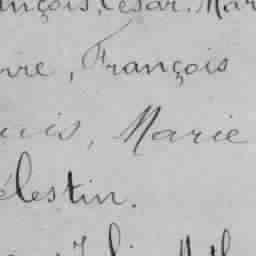 ançois, César. Mar
vre, François
uis, Marie
élestin.